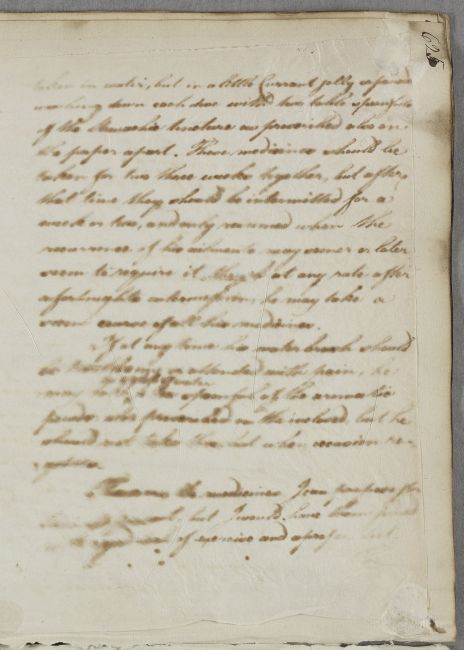 625
taken in water, but in a little Currant jelly
washing down each dose with two table spoonfuls
of the tincture as prescribed also on
the paper apart. These medicines should be
taken for two three weeks together, but after
that time they should be intermitted for a
week or two, and only resumed when the
recurrence of his ailments may sooner or later
seem to require it at any rate after
a fortnights intermission, he may take a
course of all his medicines.
If at any time his water brash should
be or attended with pain, he
may take a spoonful of the aromatic
powder also prescribed in the inclosed, but he
should not take this but when occasion re-
quires.
the medicines I can propose for
but I would have them
of exercise and a proper